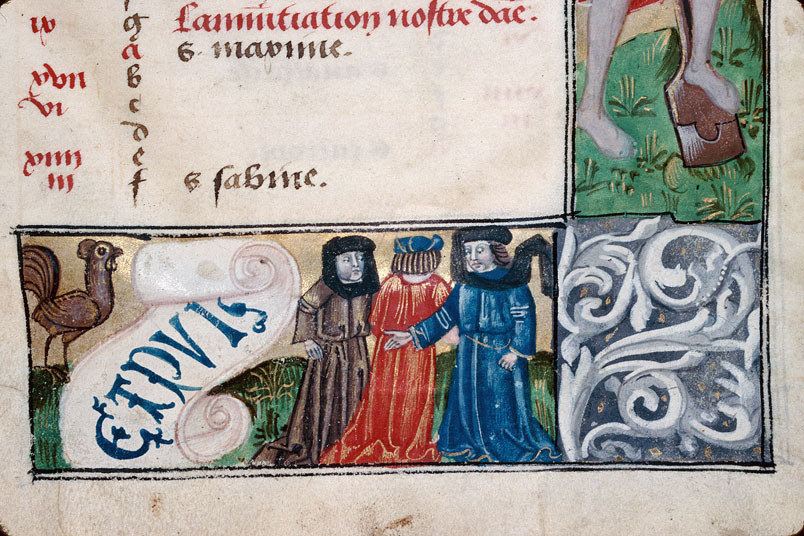 ix g Lannu(n)tiation nostre da(m)e.
a s. maxime.
xvii b
vi c
d
xiiii e
iii f s sabine.
ET PVIS